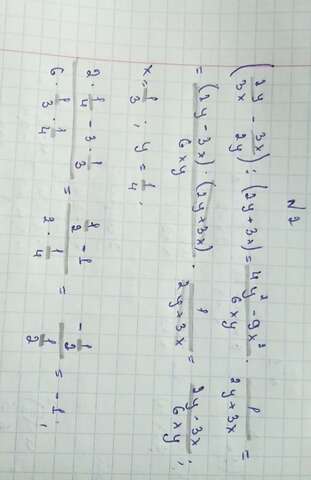 N 2
(2y/3x - 3x/2y) : (2y + 3x) = (4y² - 9x²)/(6xy) · 1/(2y + 3x) =
= ((2y - 3x) · (2y + 3x))/(6xy) · 1/(2y + 3x) = (2y - 3x)/(6xy) ;
x = 1/3 ; y = 1/4 ;
(2 · 1/4 - 3 · 1/3)/(6 · 1/3 · 1/4) = (1/2 - 1)/(2 · 1/4) = (- 1/2)/(1/2) = - 1 ;